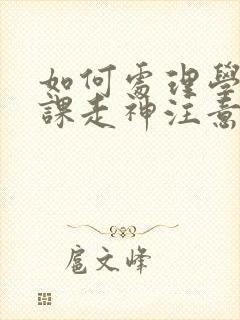 如何處理學
課走神注意
扈文峰